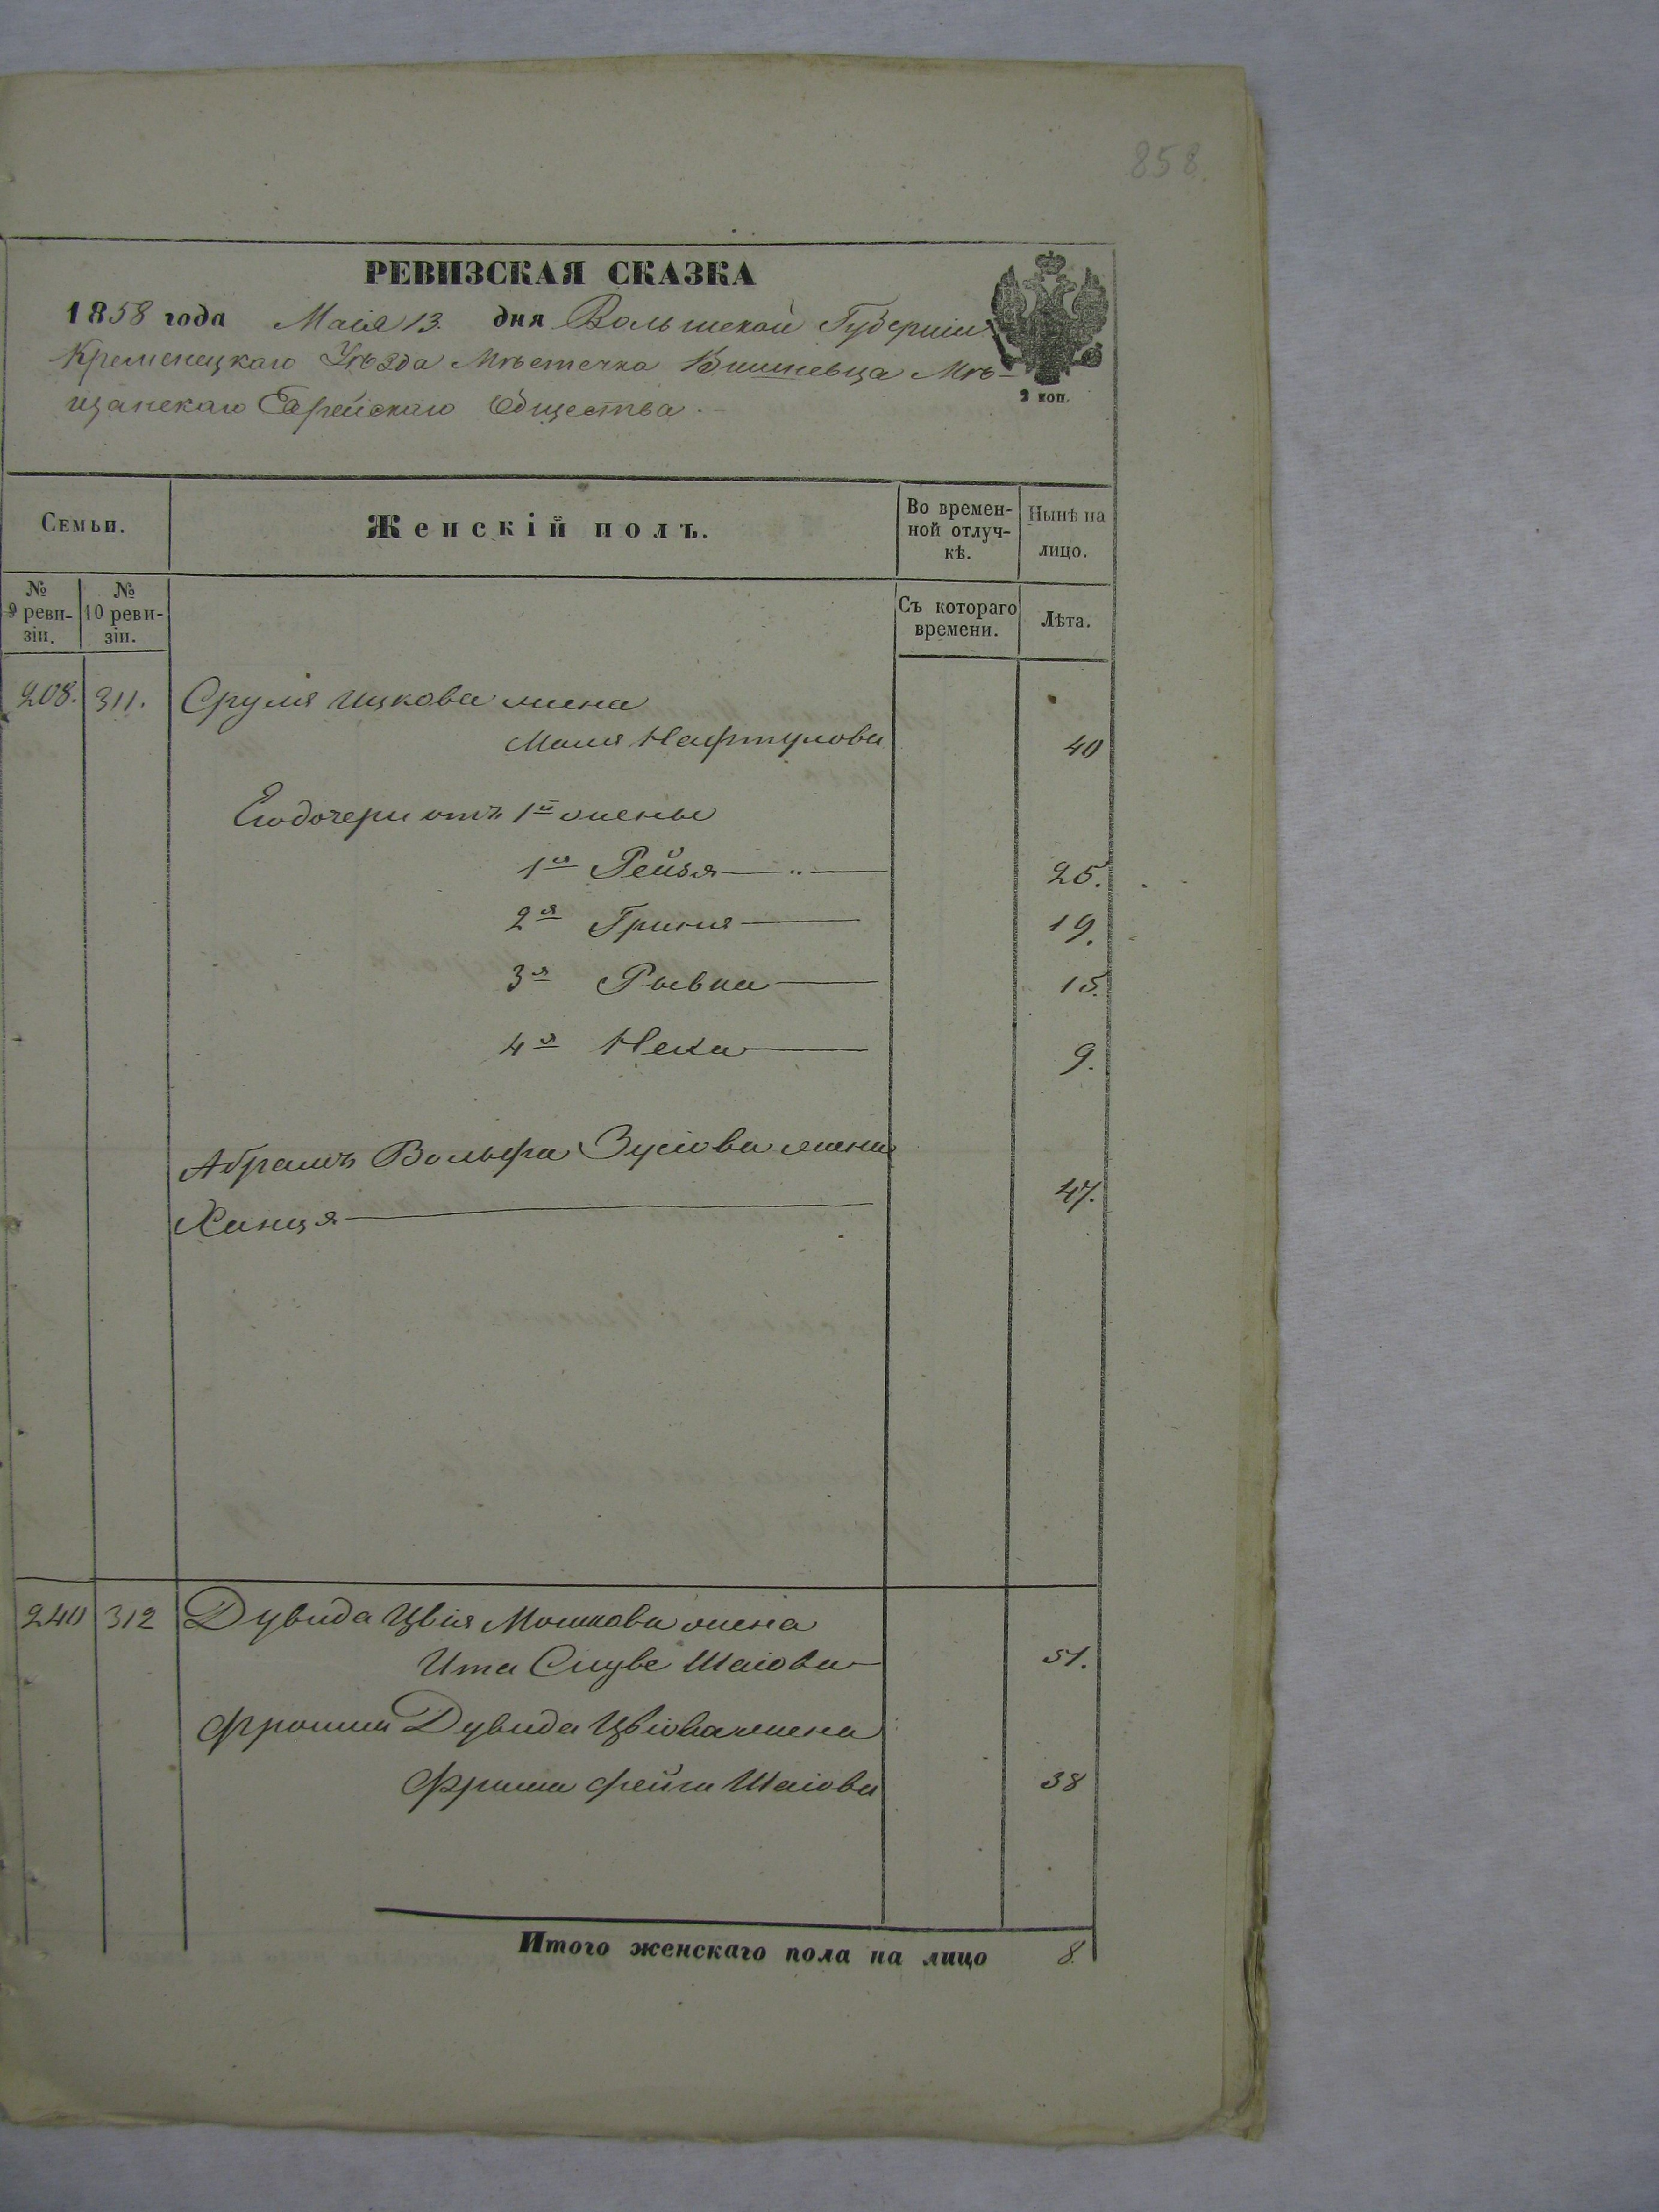 858.
РЕВИЗСКАЯ СКАЗКА
1858 года Маія 13. дня Волынской Губерніи
Кременецкаго Уѣзда Мѣстечка Вишневца Мѣ-
щанскаго Еврейскаго Общества.
2 коп.
Семьи.
Женскій полъ.
Во времен-
ной отлуч-
кѣ.
Нынѣ на
лицо.
№
9 реви-
зіи.
№
10 реви-
зіи.
Съ котораго
времени.
Лѣта.
208. 311. Сруля Ицкова жена
Маля Нафтулова 40
Его дочери отъ 1й жены
1я Рейзя 25.
2я Гриня 19.
3я Рывка 15.
4я Неха 9.
Абрамъ Вольфа Зусіова жена
Ханця 47.
240 312 Дувида Цвія Мошкова жена
Ита Шаіова 51.
Фроима Дувида Цвіова жена
Фрима Фейга Шаіова 38
Итого женскаго пола на лицо 8.